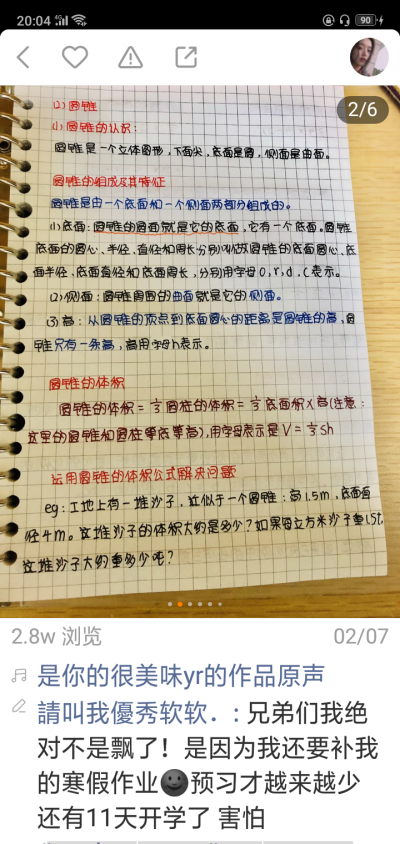 20:04
90
2/6
(2) 圆锥
(1) 圆锥的认识:
圆锥是一个立体图形,下面尖,底面是圆,侧面是曲面。
圆锥的组成及其特征
圆锥是由一个底面和一个侧面两部分组成的。
(1)底面:圆锥的圆面就是它的底面,它有一个底面。圆锥
底面的圆心、半径、直径和周长分别叫做圆锥的底面圆心、底
面半径、底面直径和底面周长,分别用字母O,r,d,C表示。
(2)侧面:圆锥周围的曲面就是它的侧面。
(3)高:从圆锥的顶点到底面圆心的距离是圆锥的高,圆
锥只有一条高,高用字母h表示。
圆锥的体积
圆锥的体积=⅓圆柱的体积=⅓底面积×高(注意:
这里的圆锥和圆柱等底等高),用字母表示是V=⅓Sh
运用圆锥的体积公式解决问题
eg:工地上有一堆沙子,近似于一个圆锥:高1.5m,底面直
径4m。这堆沙子的体积大约是多少?如果每立方米沙子重1.5t,
这堆沙子大约重多少吨?
2.8w 浏览
02/07
是你的很美味yr的作品原声
請叫我優秀软软.:兄弟们我绝
对不是飘了!是因为我还要补我
的寒假作业🌚预习才越来越少
还有11天开学了 害怕